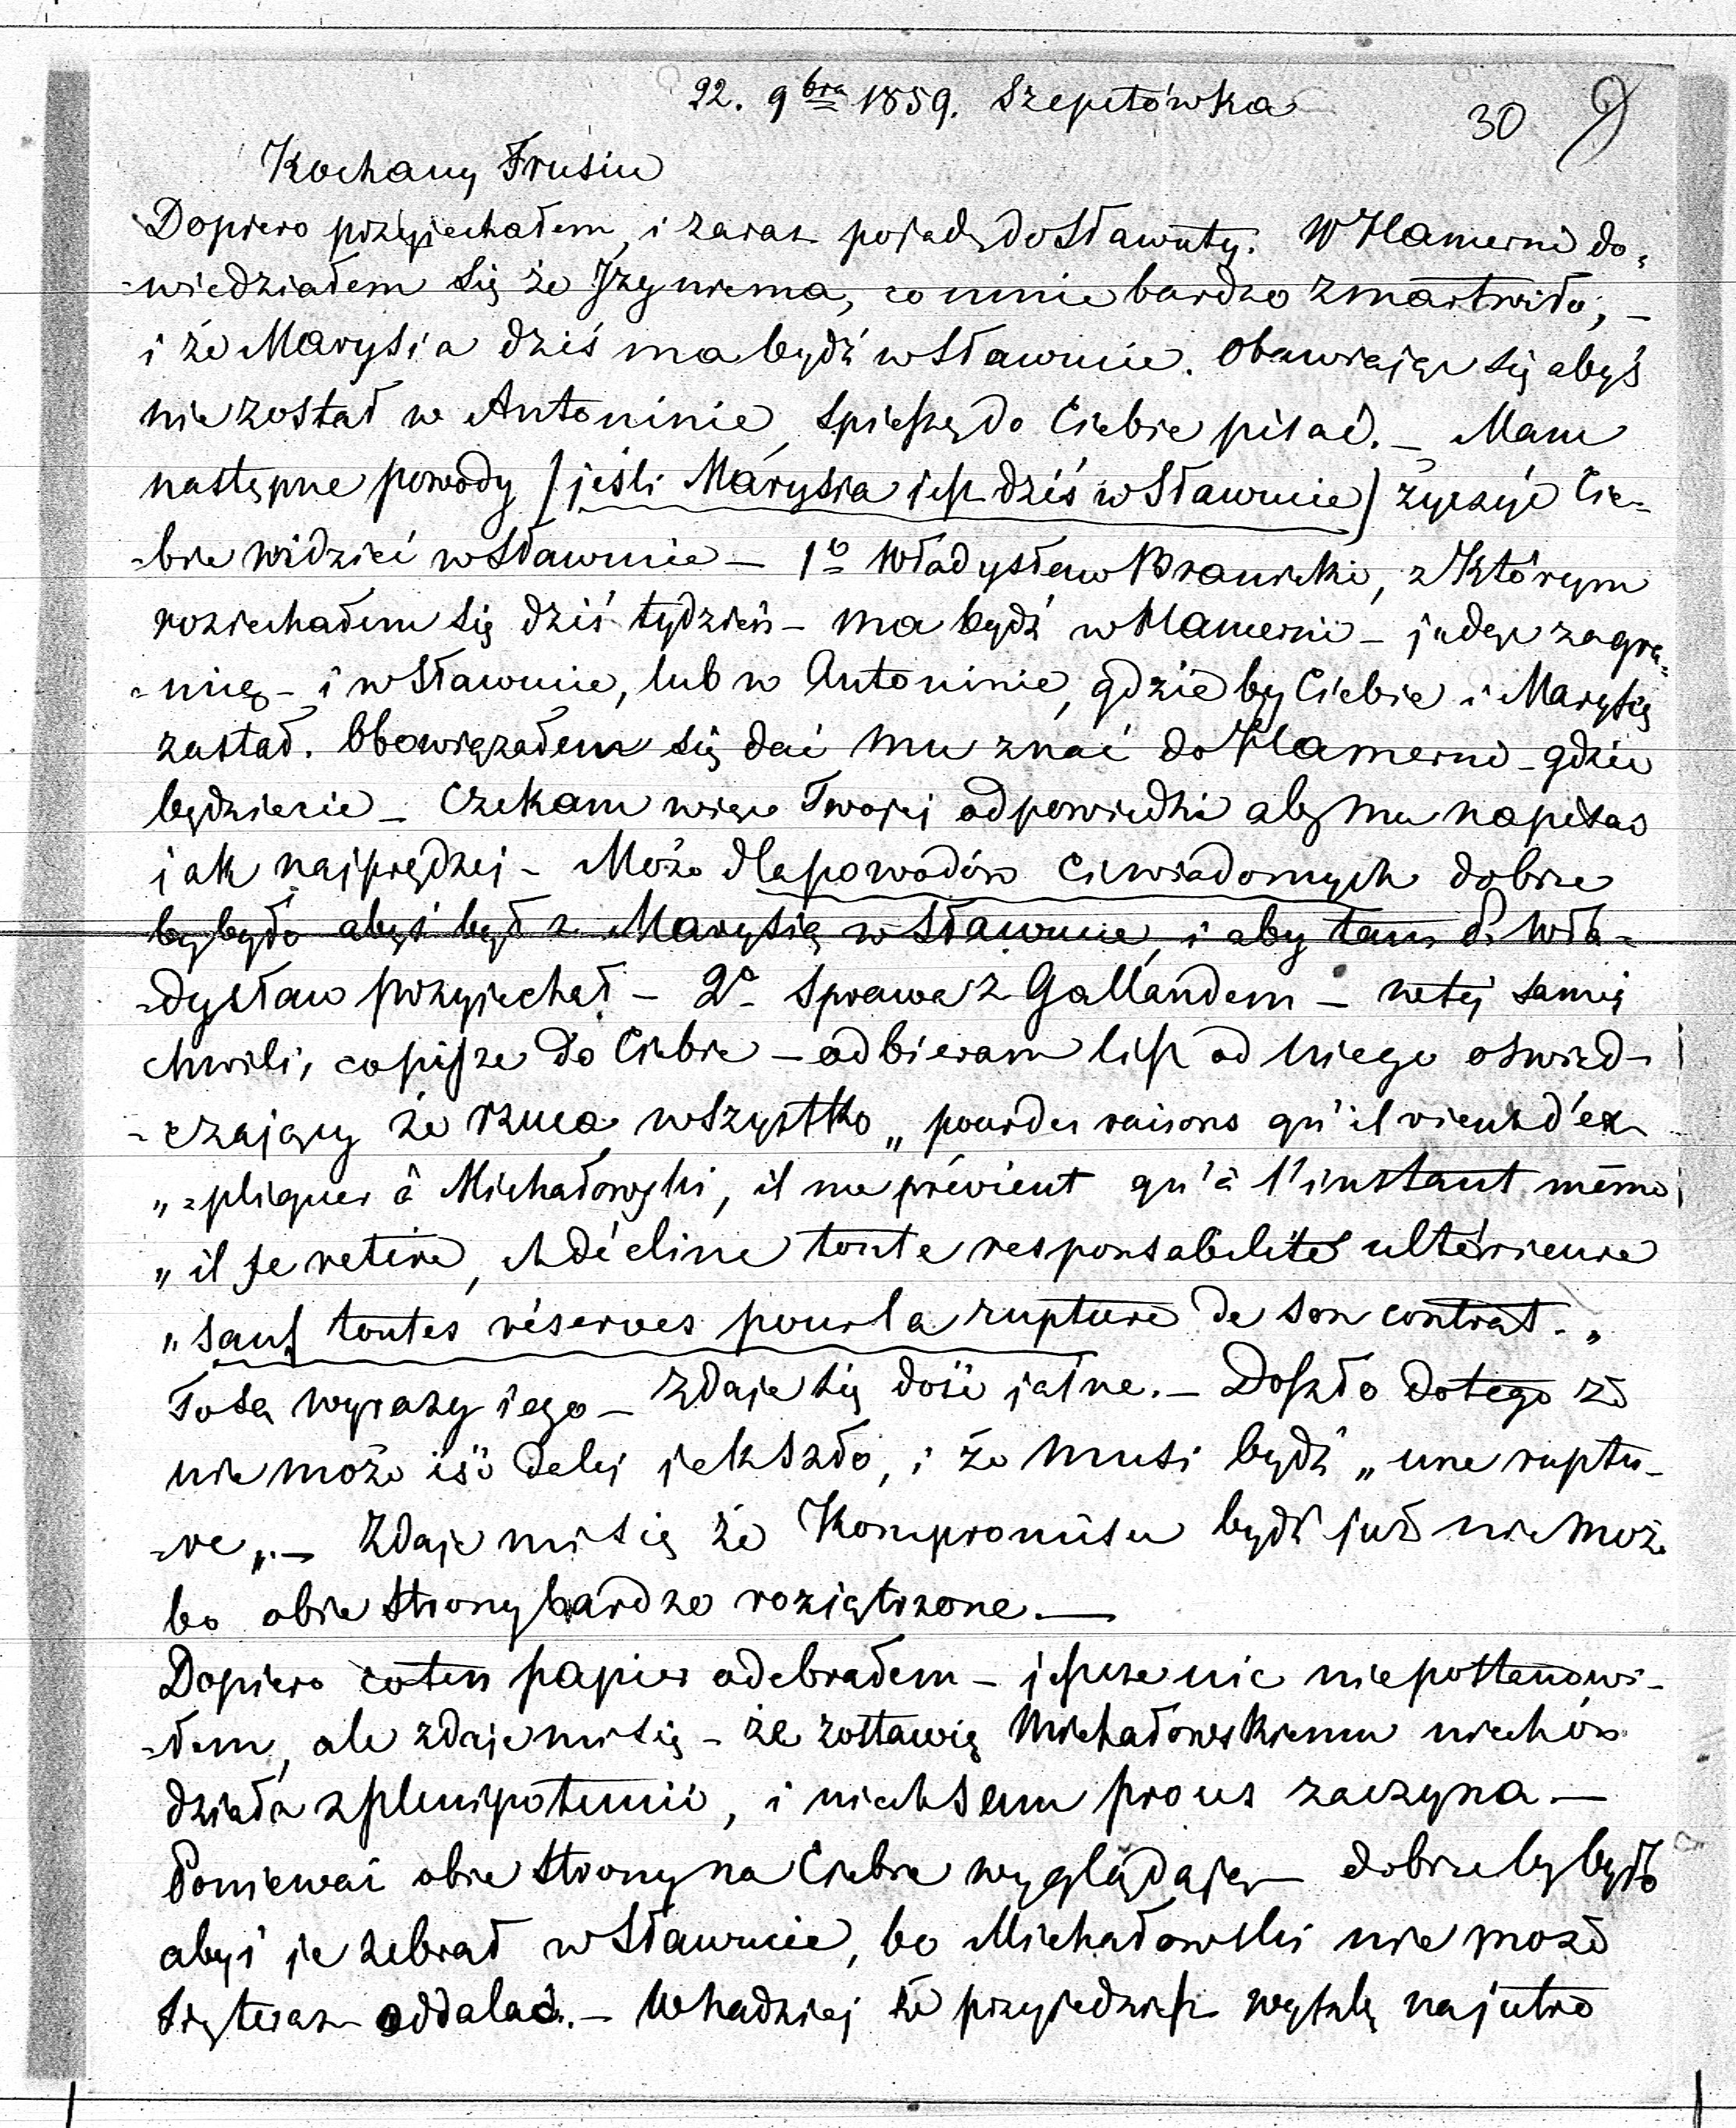 22. 9bra 1859. Szepetówka
30 9
Kochany Frusiu
Dopiero przyjechałem, i zaraz pojadę do Sławuty. W Hamerni do-
-wiedziałem się że Izy niema, co mnie bardzo zmartwiło; —
i że Marysia dziś ma bydź w Sławucie. Obawiając się abyś
nie został w Antoninie, spieszę do Ciebie pisać. — Mam
następne powody (jeśli Marysia jest dziś w Sławucie) życzyć Cie-
-bie widzieć w Sławucie — 1o Władysław Branicki, z którym
roziechałem się dziś tydzień — ma bydź w Hamerni — jadąc zagra-
-nicę — i w Sławucie, lub w Antoninie, gdzie by Ciebie i Marysię
zastał. Obowiązałem się dać mu znać do Hamerni — gdzie
będziecie — Czekam więc Twojej odpowiedzi aby mu napisać
jak najprędzej — Może dla powodów Ci wiadomych dobrze
by było abyś był z Marysią w Sławucie, i aby tam P. Wła-
-dysław przyjechał — 2o Sprawa z Gallandem — w tej samej
chwili, co piszę do Ciebie — odbieram list od niego oświad-
-czający że rzuca wszystko „pour des raisons qu'il vient d'ex-
„-pliquer à Michałowski, il me prévient qu'à l'instant même
„il se retire, et décline toute responsabilité ultérieure
„sauf toutes réserves pour la rupture de son contrat. „
To są wyrazy iego — zdaje się dość jasne. — Doszło do tego że
nie może iść dalej jak szło, i że musi bydź „une ruptu-
-re „. — Zdaje mi się że Kompromisu bydź już nie może
bo obie strony bardzo roziątrzone. —
Dopiero co ten papier odebrałem — jeszcze nic nie postanowi-
-łem, ale zdaje mi się — że zostawię Michałowskiemu niech on
działa z plenipotencii, i niech sam proces zaczyna —
Ponieważ obie strony na Ciebie wyglądają — dobrze by było
abyś je zebrał w Sławucie, bo Michałowski nie może
się teraz oddalać. — W nadziej że przyjedziesz wyszlę na jutro